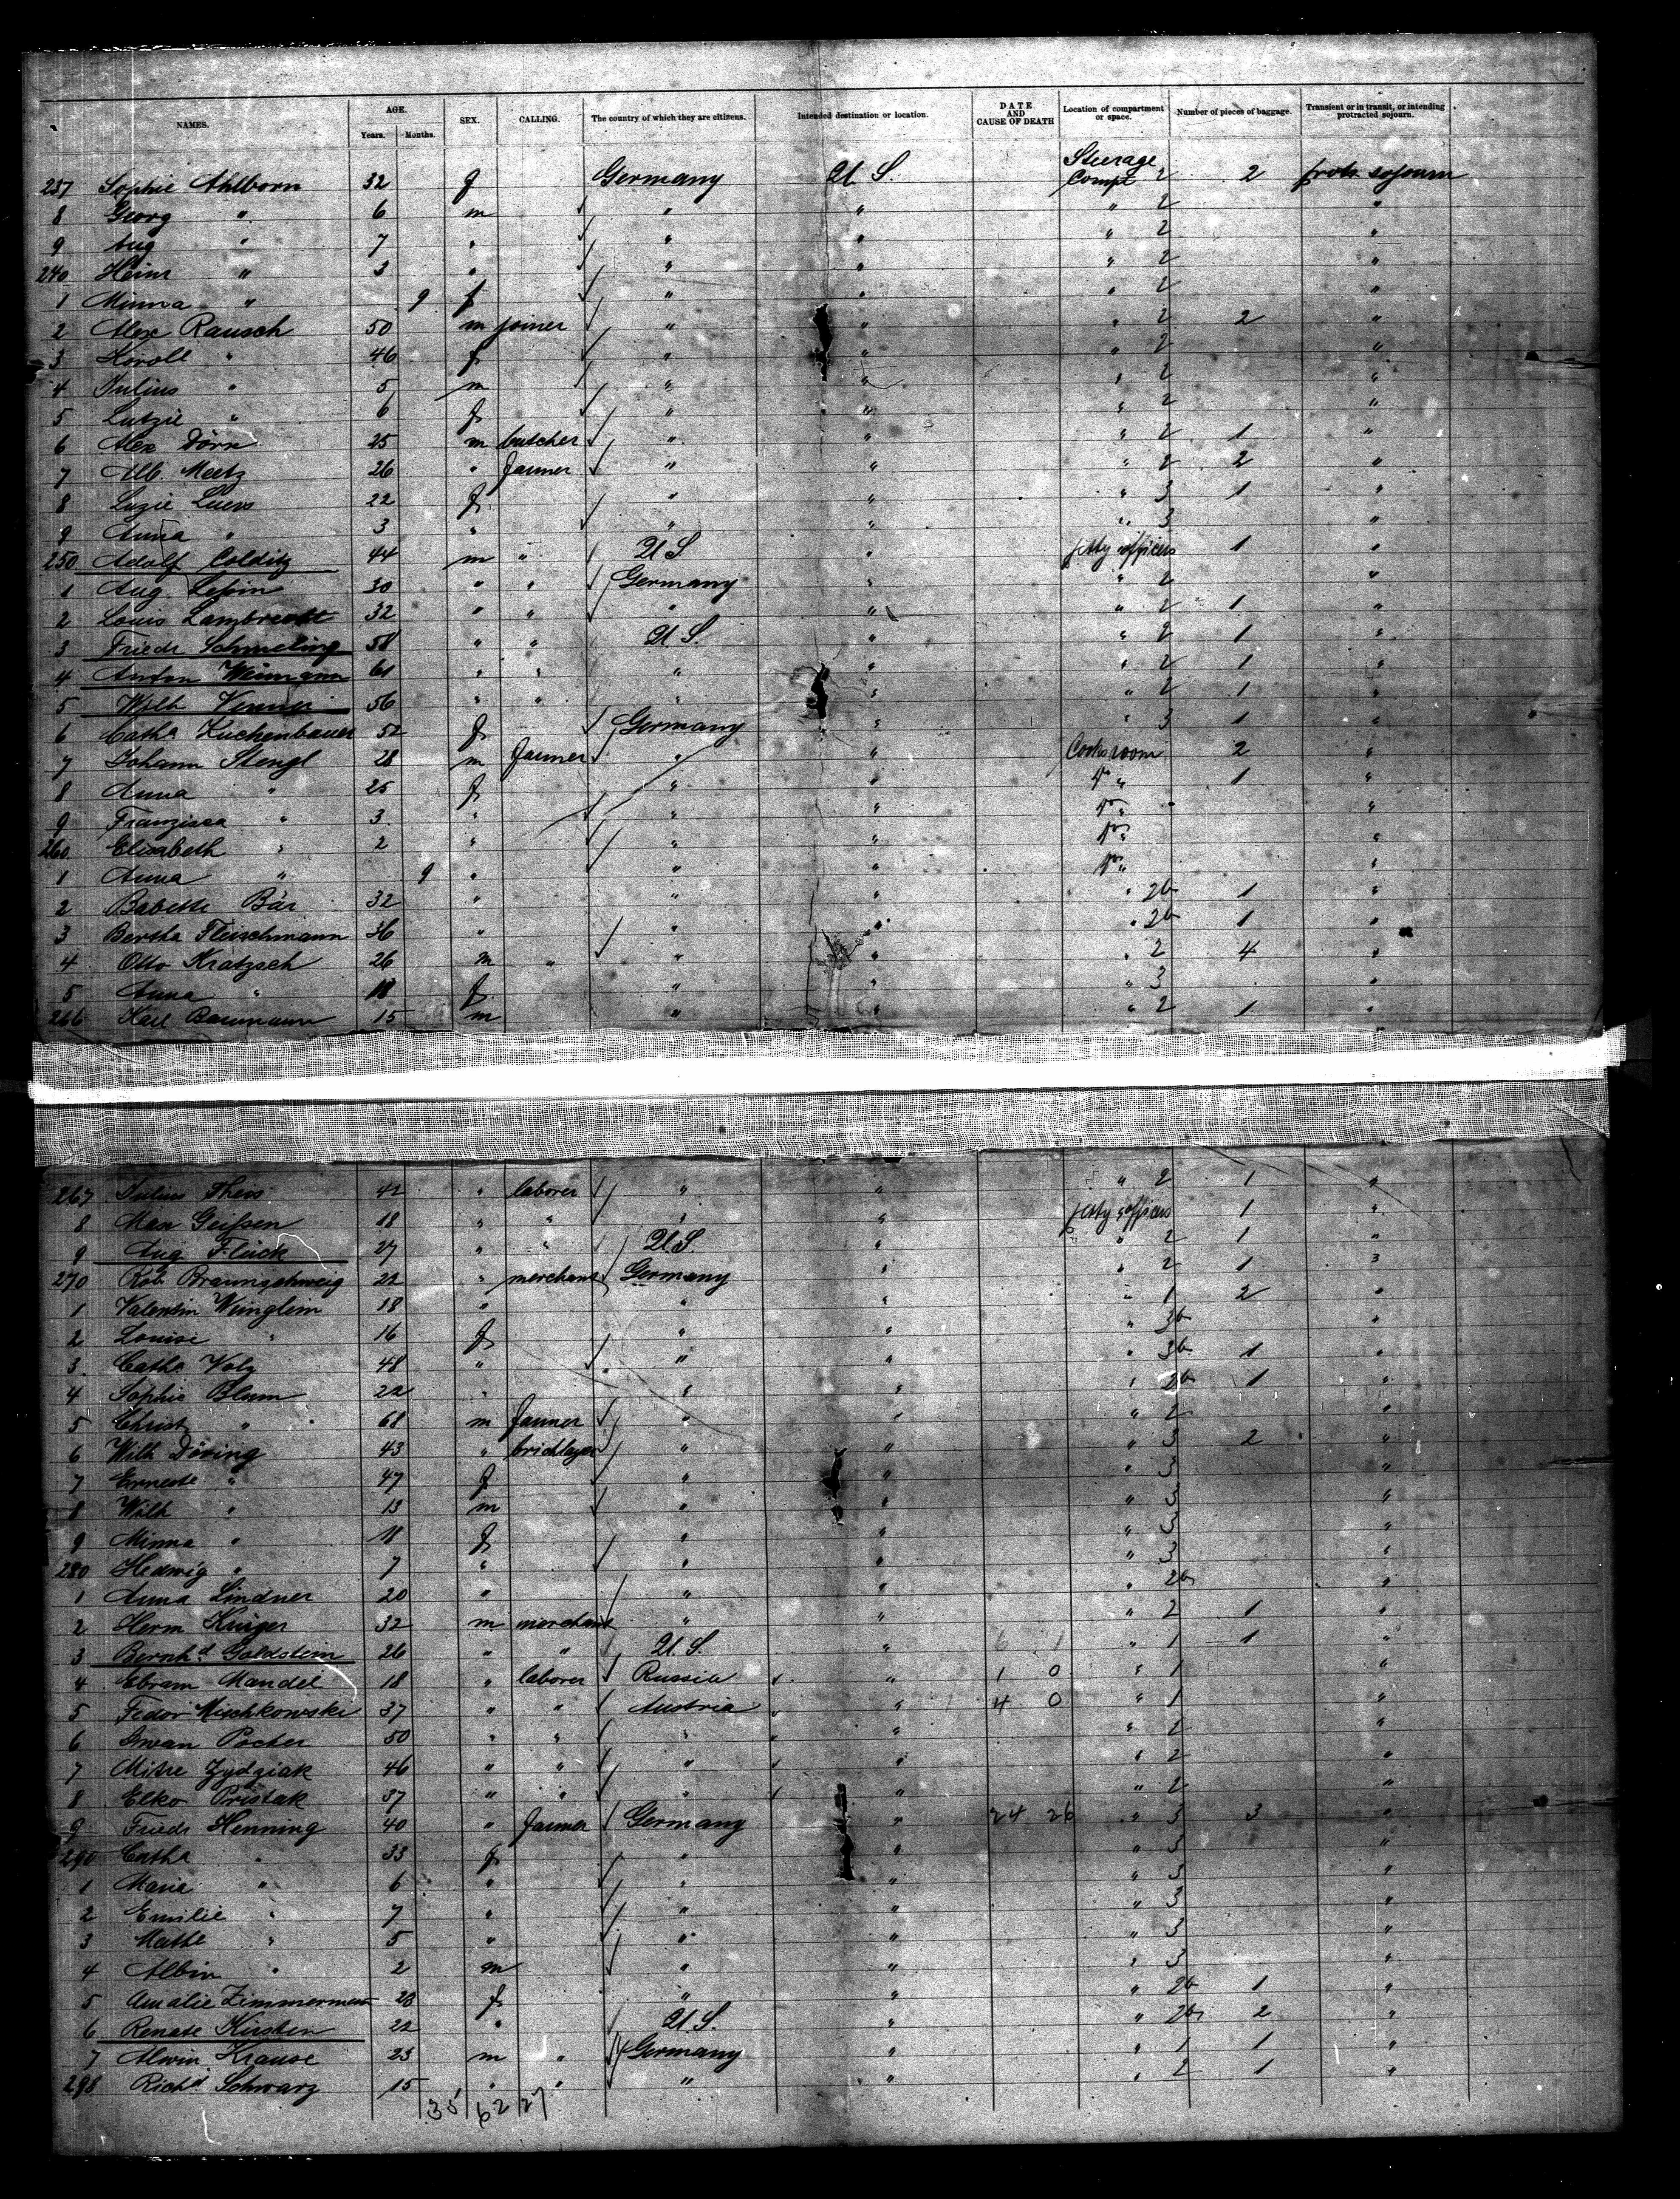 NAMES. AGE. Years. Months. SEX. CALLING. The country of which they are citizens. Intended destination or location. DATE AND CAUSE OF DEATH Location of compartment or space. Number of pieces of baggage. Transient or in transit, or intending protracted sojourn.
237 Sophie Ahlborn 32 f Germany U.S. Steerage Compt 2 2 protr. sojourn
8 Georg " 6 m " " " 2 "
9 Aug " 7 " " " " 2 "
240 Heinr " 3 " " " " 2 "
1 Minna " 9 f " " " 2 "
2 Alex Rausch 50 m joiner " " " 2 2 "
3 " 46 f " " " 2 "
4 Julius " 5 m " " " 2 "
5 Lutzie " 6 f " " " 2 "
6 Alex Dörr 25 m butcher " " " 2 1 "
7 Alb. Meetz 26 " farmer " " " 2 2 "
8 Luzie Luers 22 f " " " 3 1 "
9 Anna " 3 " " " " 3 "
250 Adolf Colditz 44 m " U.S " petty officers 1 "
1 Aug. Lepin 30 " " Germany " " 2 "
2 Louis Lambrecht 32 " " " " " 2 1 "
3 Friedr Schmeling 58 " " U.S. " " 2 1 "
4 Anton Weimann 61 " " " " " 2 1 "
5 Wilh 56 " " " " " 2 1 "
6 Catha Kuchenbauer 52 f Germany " " 3 1 "
7 Johann Stengl 28 m farmer " " Cooks room 2 "
8 Anna " 25 f " " " 1 "
9 Franzisca " 3 " " " " "
260 Elisabeth " 2 " " " " "
1 Anna " 9 " " " " "
2 Babette Bär 32 " " " " 2b 1 "
3 Bertha Fleischmann 36 " " " " 2b 1 "
4 Otto Kratzsch 26 m " " " " 2 4 "
5 Anna " 18 f " " " 3 "
266 Karl Baumann 15 m " " " 2 1 "
267 Julius Theis 42 " laborer " " " 2 1 "
8 Max Geißen 18 " " " " petty officers 1 "
9 Aug Flück 27 " " U.S " " 2 1 "
270 Rob Braunschweig 22 " merchant Germany " " 2 1 "
1 Valentin Wenglein 18 " " " " 1 2 "
2 Louise " 16 f " " " 3b "
3 Catha Volz 48 " " " " 3b 1 "
4 Sophie Blum 22 " " " " 2b 1 "
5 Christ " 68 m farmer " " " 2 "
6 Wilh Döring 43 " bricklayer " " " 3 2 "
7 Erneste " 47 f " " " 3 "
8 Wilh " 13 m " " " 3 "
9 Minna " 11 f " " " 3 "
280 Hedwig " 7 " " " " 3 "
1 Anna Lindner 20 " " " " 2b "
2 Herm Krüger 32 m merchant " " " 2 1 "
3 Bernhd Goldstein 26 " " U.S. " 6 1 " 1 1 "
4 Ebram Mandel 18 " laborer Russia " 1 0 " 1 "
5 Fedor Mischkowski 37 " " Austria " 4 0 " 1 "
6 Iwan Pocher 50 " " " " " 2 "
7 Mitre Zydziak 46 " " " " " 2 "
8 Elko Pristak 37 " " " " " 2 "
9 Friedr Henning 40 " farmer Germany " 24 26 " 3 3 "
290 Catha " 33 f " " " 3 "
1 Maria " 6 " " " " 3 "
2 Emilie " 7 " " " " 3 "
3 Mathe " 5 " " " " 3 "
4 Albin " 2 m " " " 3 "
5 Amalie Zimmermann 23 f " " " 2b 1 "
6 Renate Kirsten 22 " U.S. " " 2b 2 "
7 Alwin Krause 23 m " Germany " " 1 1 "
298 Richd Schwarz 15 " " " " " 2 1 "
35 62 27